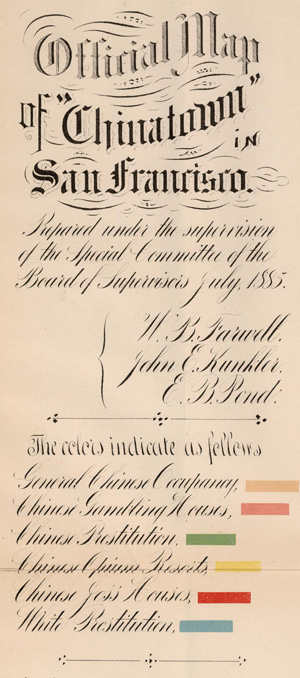 Official Map
of "Chinatown"
in
San Francisco.
Prepared under the supervision
of the Special Committee of the
Board of Supervisors July, 1885.
W. B. Farwell.
John E. Kunkler.
E. B. Pond.
The colors indicate as follows
General Chinese Occupancy,
Chinese Gambling Houses,
Chinese Prostitution,
Chinese Opium Resorts,
Chinese Joss Houses,
White Prostitution,